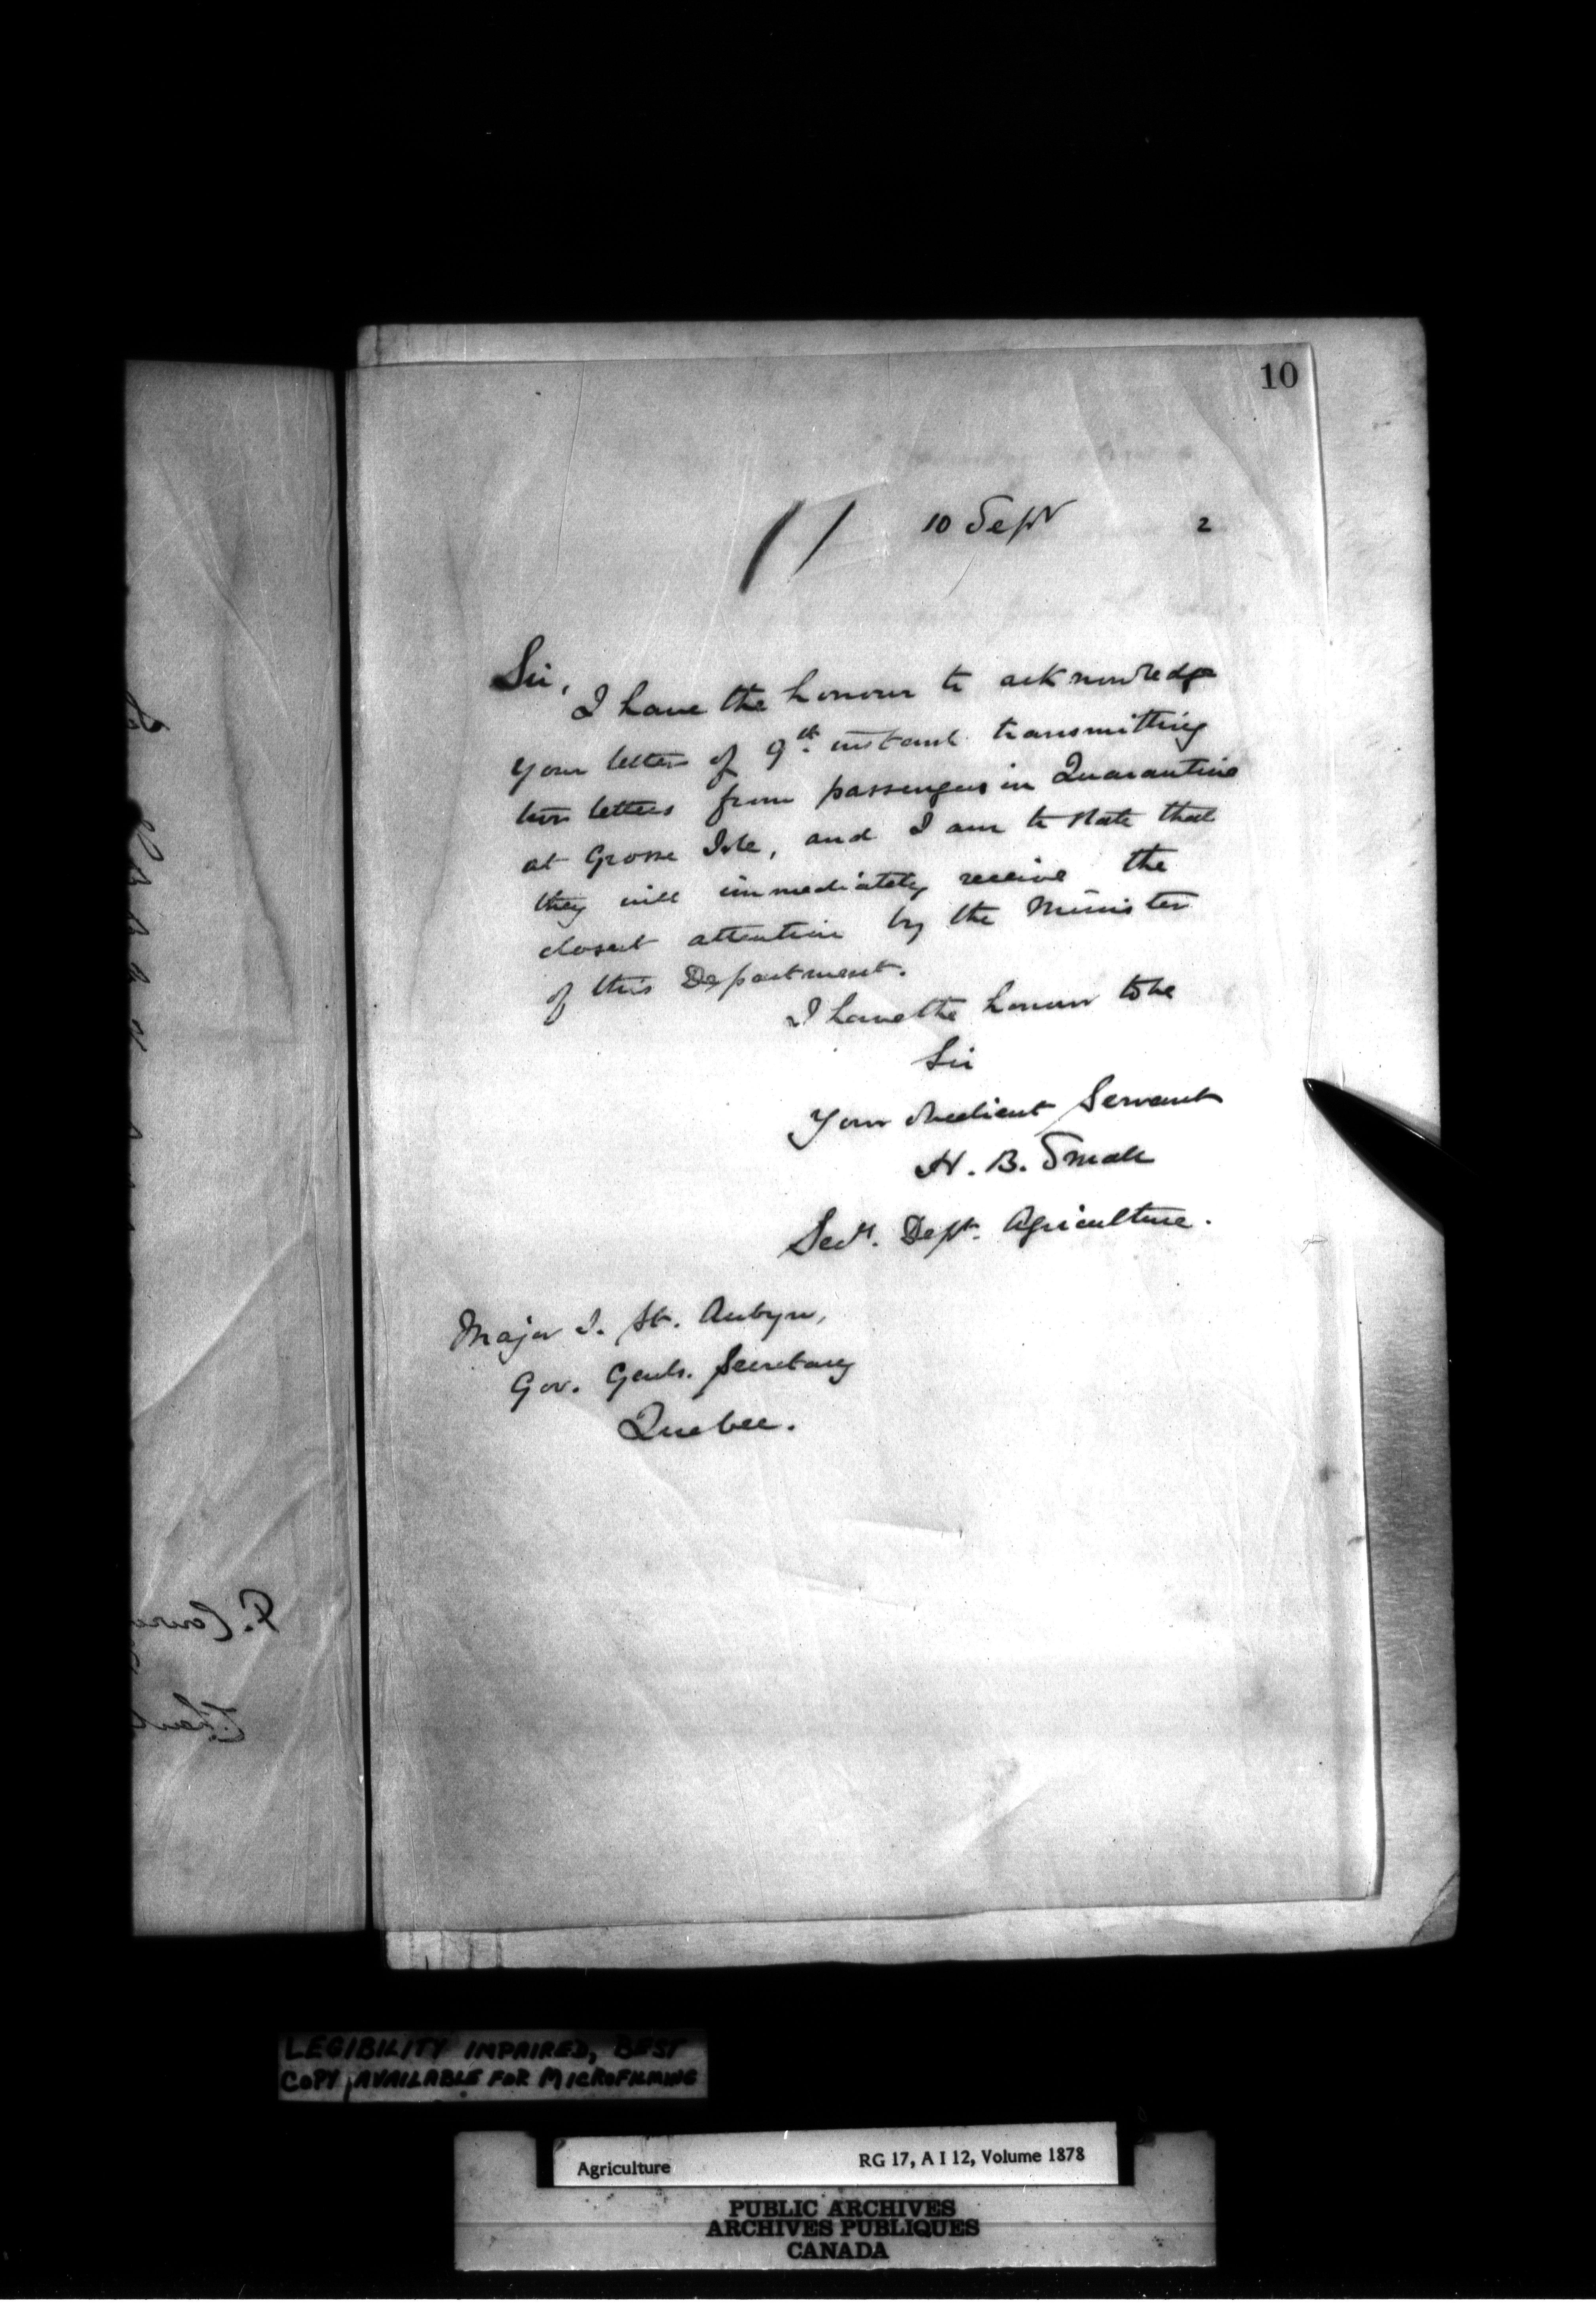 10
10 Sept 2
Sir,
I have the honour to acknowledge
your letter of 9th. instant transmitting
two letters from passengers in Quarantine
at Grosse Isle, and I am to state that
they will immediately receive the
closest attention by the Minister
of this Department.
I have the honour to be
Sir
Your obedient Servant
H. B. Small
Secy. Dept. Agriculture.
Major J. St. Aubyn,
Gov. Genls. Secretary
Quebec.
LEGIBILITY IMPAIRED, BEST
COPY AVAILABLE FOR MICROFILMING
Agriculture RG 17, A I 12, Volume 1878
PUBLIC ARCHIVES
ARCHIVES PUBLIQUES
CANADA